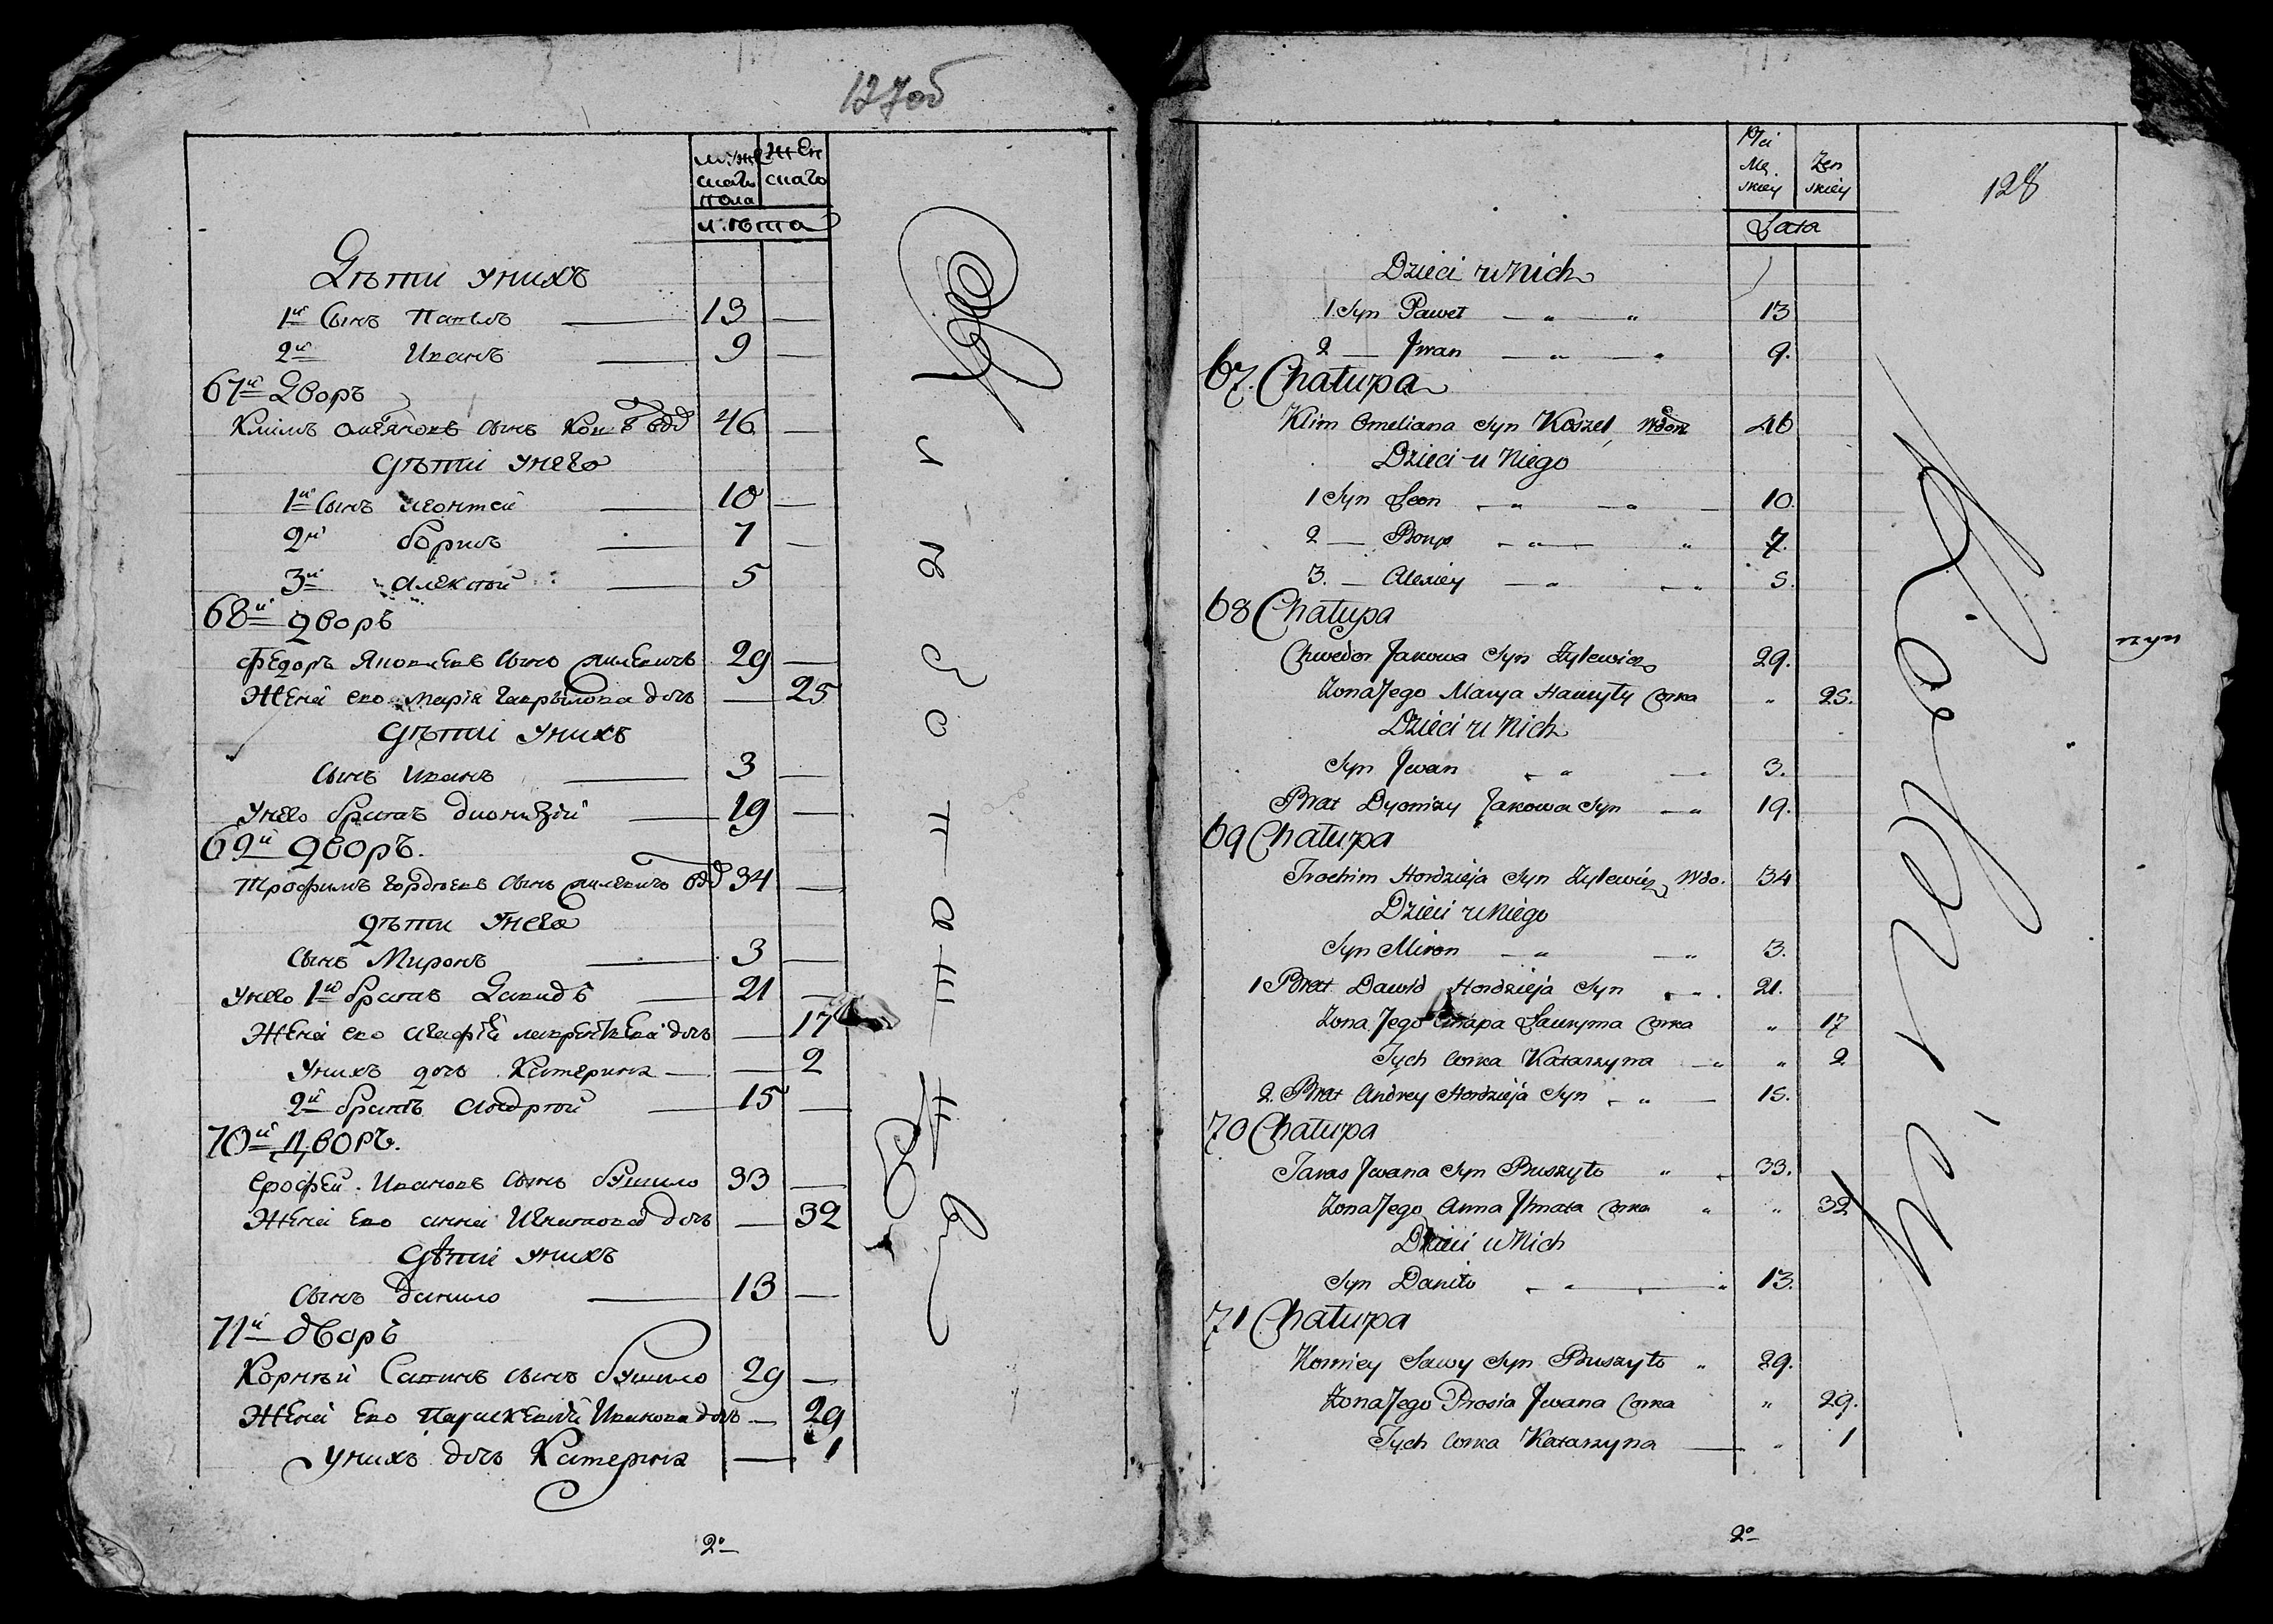 127об
мужескаго пола
женскаго
лѣта
Дѣти у нихъ
1й Сынъ Павелъ 13 —
2й Иванъ 9 —
67й Дворъ
Климъ Омеяновъ сынъ вдо 46 —
Дѣти у него
1й Сынъ Леонтей 10 —
2й борисъ 7 —
3й алексѣй 5
68й Дворъ
Федоръ Яковлевъ сынъ 29 —
Жена ево Марiя Гаврылова дочь — 25
Дѣти у нихъ
Сынъ Иванъ 3 —
У него братъ дионизiй 19 —
69й Дворъ.
Трофимъ Гордѣевъ сынъ вдо 34 —
Дѣти у него
Сынъ Миронъ 3 —
У него 1й братъ Давидъ 21 —
Жена ево агафiя дочь — 17
У нихъ дочь Катерина — 2
2й братъ андрѣй 15 —
70й Дворъ.
Ерофей Ивановъ сынъ бушило 33 —
Жена Ево анна Игнатова дочь — 32
Дѣти у нихъ
Сынъ данило 13 —
71й дворъ
Корнѣй Савинъ сынъ бушило 29 —
Жена Ево Параскевiя Иванова дочь — 29
У нихъ дочь Катерина — 1
2о
128
Płci Męskiey
Zenskiey
Lata
Dzieci u Nich
1 Syn Paweł — " — " 13
2 — Jwan — " — " 9.
67. Chałupa
Klim Omeliana Syn Koszel, Wdow 46
Dzieci u Niego
1 Syn Leon — " — " 10.
2 — Borys — " — " 7.
3. — Alexiey — " — " 5.
68 Chałupa
Chwedor Jakowa Syn Zylewicz 29.
Zona Jego Marya Hawryły Corka " 25.
Dzieci u Nich
Syn Jwan — " — 3.
Brat Dyonizy Jakowa Syn — " 19.
69 Chałupa
Trochim Hordzieja Syn Zylewicz Wdo. 34
Dzieci u Niego
Syn Miron — " — " 3.
1 Brat Dawid Hordzieja Syn — " 21.
Zona Jego Ławryna Corka " 17
Tych Corka Katarzyna — " " 2
2. Brat Andrey Hordzieja Syn — " — 15.
70 Chałupa
Taras Jwana Syn Buszyło " 33.
Zona Jego Anna Jhnata Corka " " 32
Dzieci u Nich
Syn Daniło — " — " 13.
71 Chałupa
Korniey Sawy Syn Buszyło " 29.
Zona Jego Prosia Jwana Corka " 29.
Tych Corka Katarzyna — " 1
2о